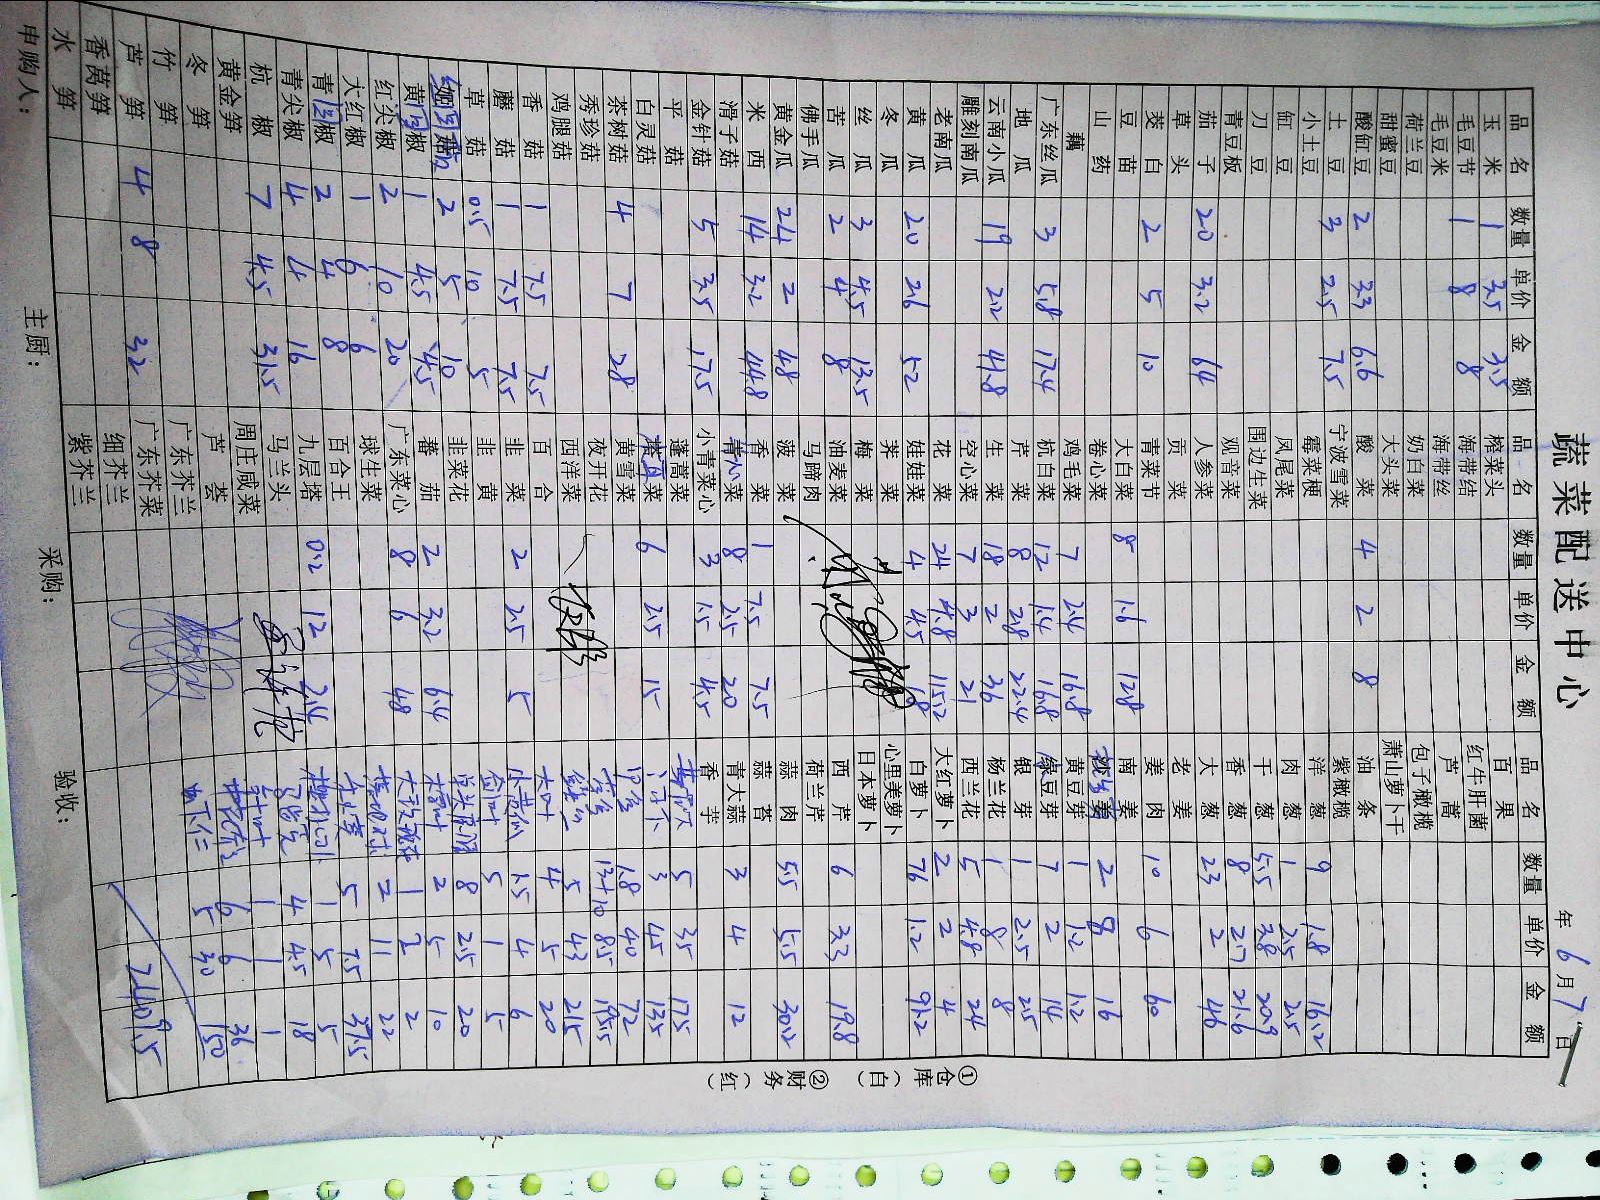 蔬菜配送中心
年6月7日
品名 数量 单价 金额
玉米 1 3.5 3.5
毛豆节 1 8 8
毛豆米
荷兰豆
甜蜜豆
酸缸豆 2 3.3 6.6
土豆 3 2.5 7.5
小土豆
缸豆
刀豆
青豆板
茄子 20 3.2 64
草头
茭白 2 5 10
豆苗
山药
藕
广东丝瓜 3 5.8 17.4
地瓜
云南小瓜 19 2.2 41.8
雕刻南瓜
老南瓜
黄瓜 20 2.6 52
冬瓜
丝瓜 3 4.5 13.5
苦瓜 2 4 8
佛手瓜
黄金瓜 24 2 48
西米 14 3.2 44.8
滑子菇
金针菇 5 3.5 17.5
平菇
白灵菇
茶树菇 4 7 28
秀珍菇
鸡腿菇
香菇 1 7.5 7.5
蘑菇 1 7.5 7.5
草菇 0.5 10 5
2 5 10
黄椒 1 4.5 4.5
红尖椒 2 10 20
大红椒 1 6 6
青椒 2 4 8
青尖椒 4 4 16
杭椒 7 4.5 31.5
黄金笋
冬笋
竹笋
芦笋 4 8 32
香莴笋
水笋
品名 数量 单价 金额
榨菜头
海带结
海带丝
奶白菜
大头菜
酸菜 4 2 8
宁波雪菜
霉菜梗
凤尾菜
围边生菜
观音菜
人参菜
贡菜
青菜节
大白菜 8 1.6 12.8
卷心菜
鸡毛菜 7 2.4 16.8
杭白菜 12 1.4 16.8
芹菜 8 2.8 22.4
生菜 18 2 36
空心菜 7 3 21
花菜 24 4.8 115.2
娃娃菜 4 4.5 18
荠菜
梅菜
油麦菜
马蹄肉
菠菜
香菜 1 7.5 7.5
菜 8 2.5 20
小青菜心 3 1.5 4.5
蓬蒿菜
菜 6 2.5 15
黄雪菜
夜开花
西洋菜
百合
韭菜 2 2.5 5
韭黄
韭菜花
蕃茄 2 3.2 6.4
广东菜心 8 6 48
球生菜
百合王
九层塔 0.2 12 2.4
马兰头
周庄咸菜
芦荟
广东芥兰
广东芥菜
细芥兰
紫芥兰
品名 数量 单价 金额
百果
红牛肝菌
芦蒿
包子橄榄
萧山萝卜干
油条
紫橄榄
洋葱 9 1.8 16.2
肉葱 1 2.5 2.5
干葱 5.5 3.8 20.9
香葱 8 2.7 21.6
大葱 23 2 46
老姜
姜肉 10 6 60
南姜
2 8 16
黄豆芽 1 1.2 1.2
绿豆芽 7 2 14
银芽 1 2.5 2.5
杨兰花 1 8 8
西兰花 5 4.8 24
大红萝卜 2 2 4
白萝卜 76 1.2 91.2
心里美萝卜
日本萝卜
西芹 6 3.3 19.8
荷兰芹
蒜肉 5.5 5.5 30.2
蒜苔
青大蒜 3 4 12
香芋
5 35 175
3 45 135
1.8 40 72
13+10 8.5 195.5
5 43 215
4 5 20
1.5 4 6
5 1 5
8 2.5 20
2 5 10
1 2 2
2 11 22
5 7.5 37.5
1 5 5
4 4.5 18
1 1 1
6 6 36
5 30 150
2409.5
申购人：
主厨：
采购：
验收：
①仓库（白）
②财务（红）